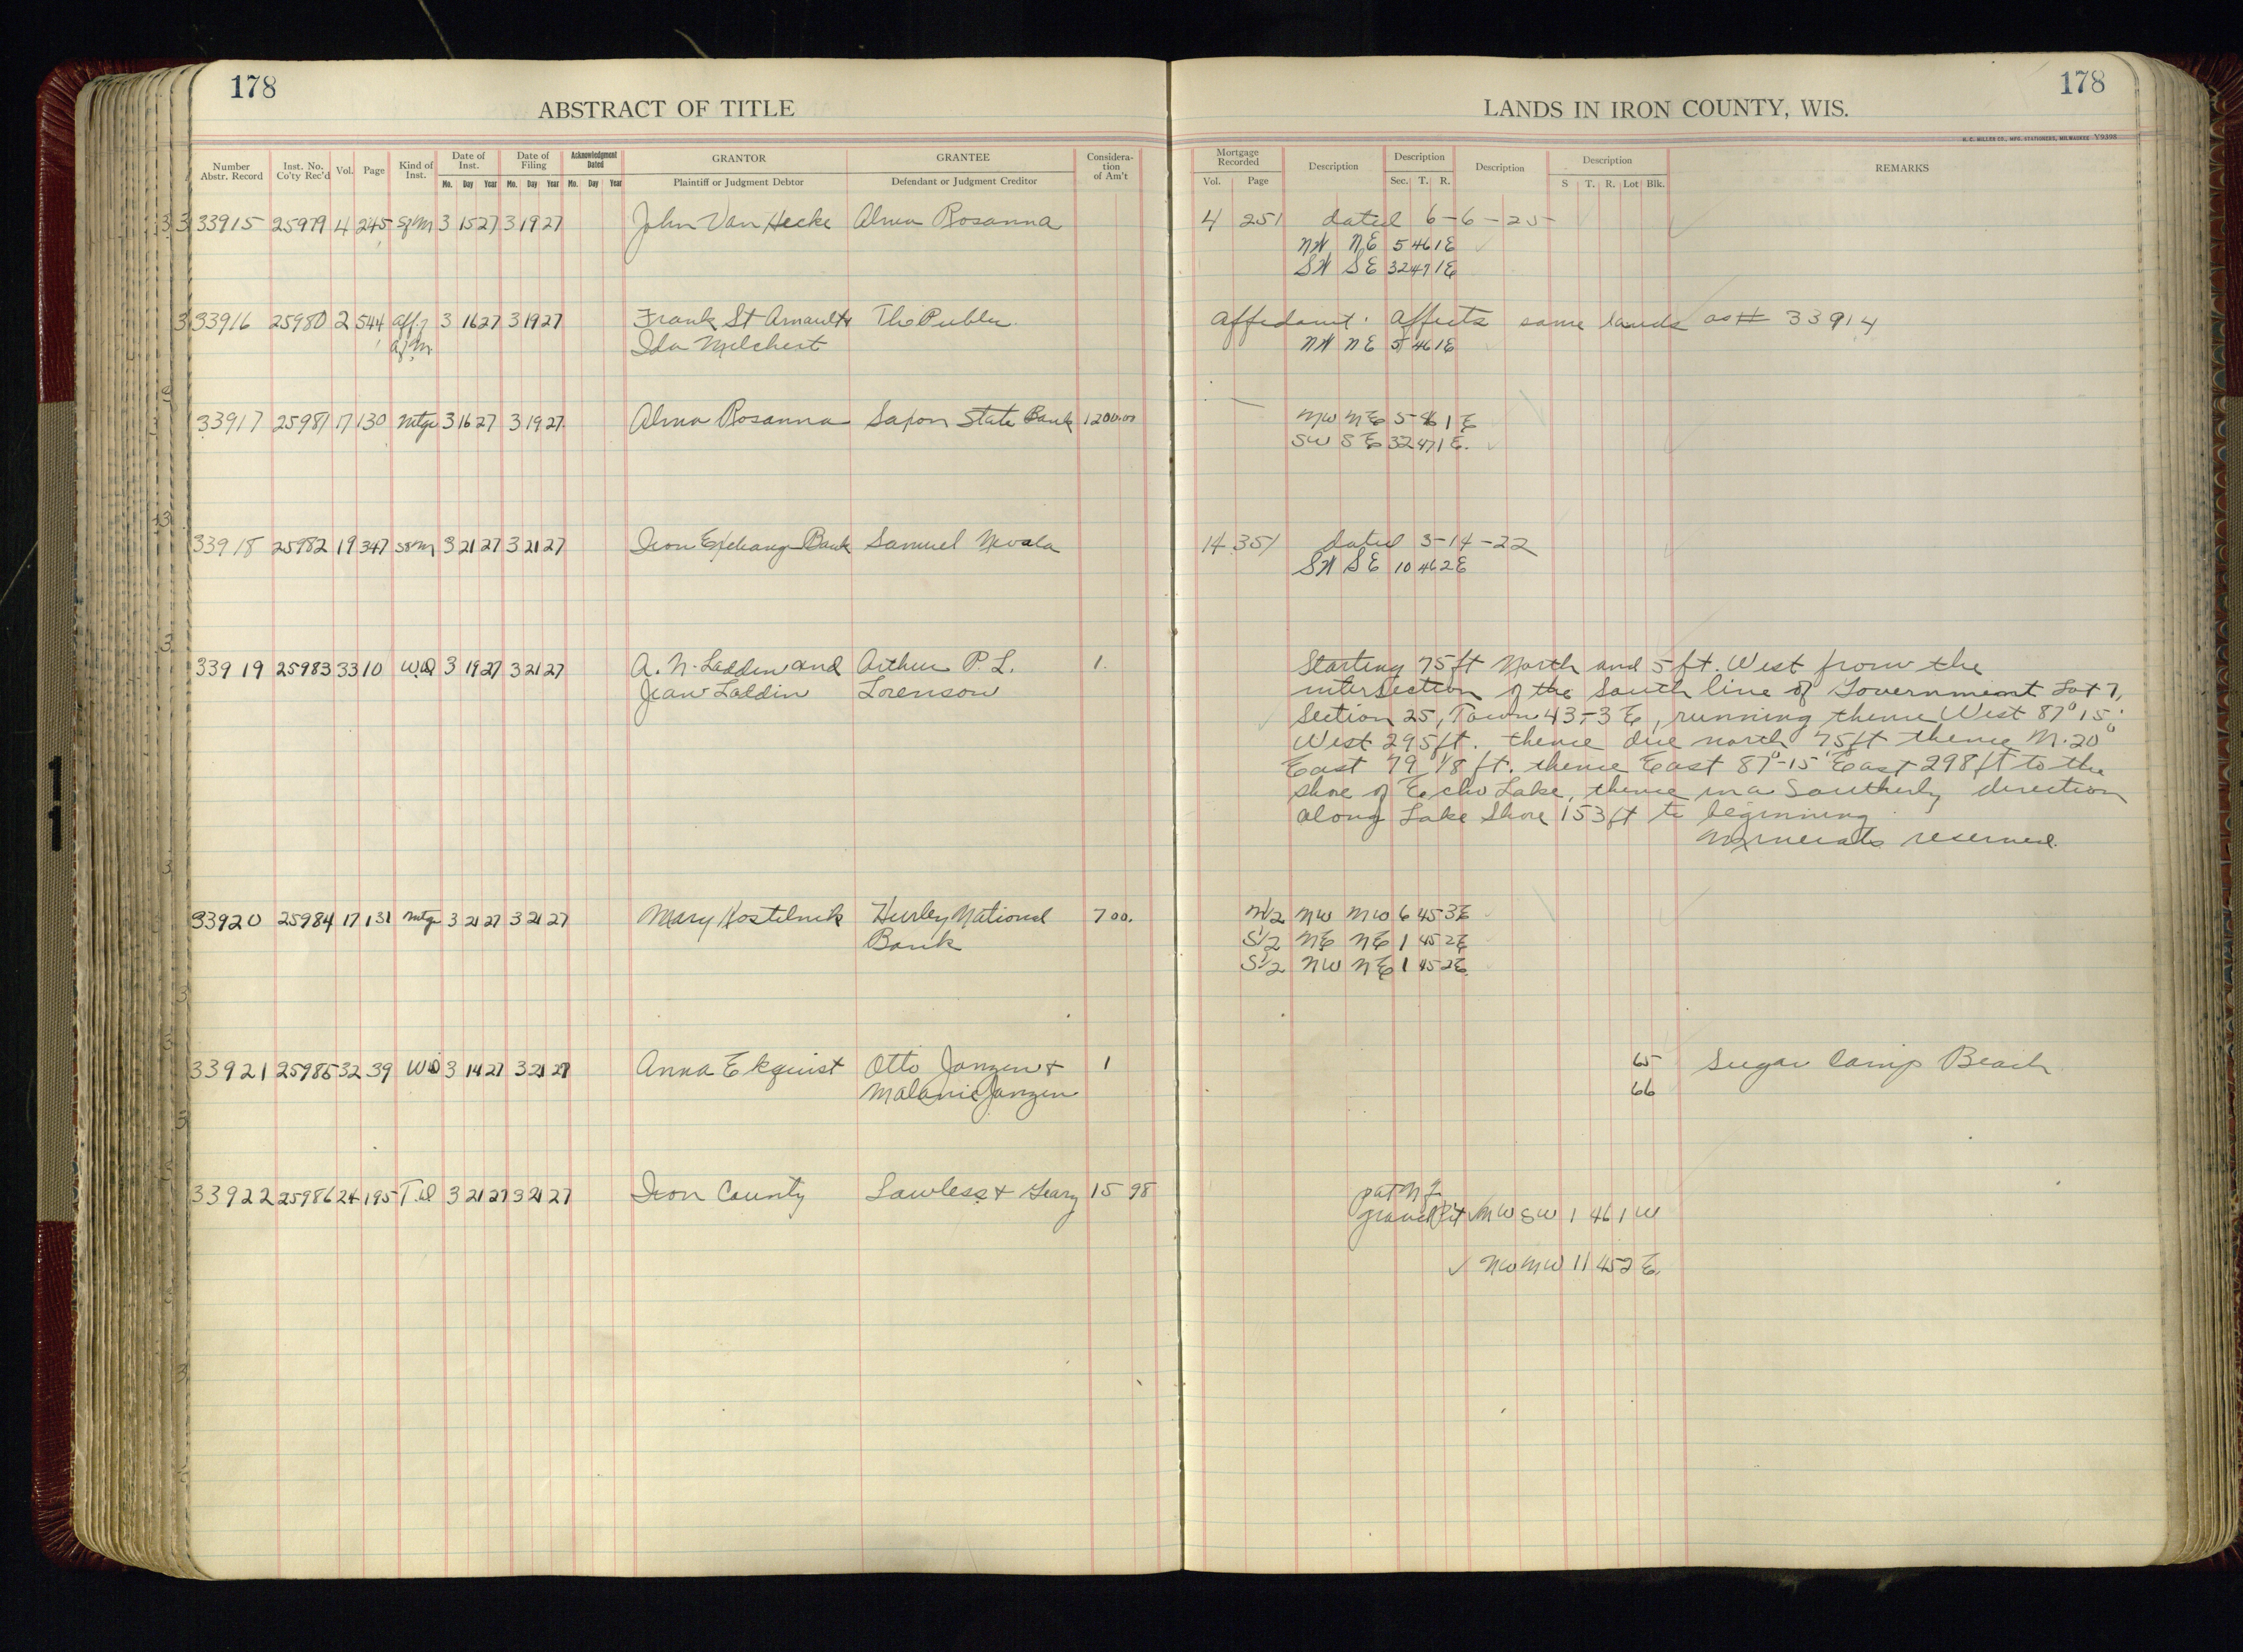 178
ABSTRACT OF TITLE
Number Abstr. Record Inst. No. Co'ty Rec'd Vol. Page Kind of Inst. Date of Inst. Mo. Day Year Date of Filing Mo. Day Year Acknowledgment Dated Mo. Day Year GRANTOR Plaintiff or Judgment Debtor GRANTEE Defendant or Judgment Creditor Consideration of Am't
33915 25979 4 245 SfM 3 15 27 3 19 27 John Van Hecke Alma Rosanna
33916 25980 2 544 Aff. 3 16 27 3 19 27 Frank St Arnault & The Public
Af M. Ida Melchert
33917 25981 17 130 Mtge 3 16 27 3 19 27 Alma Rosanna Saxon State Bank 1200.00
33918 25982 19 347 SfM 3 21 27 3 21 27 Iron Exchange Bank Samuel Nevala
33919 25983 33 10 WD 3 19 27 3 21 27 A. N. Laddin and Arthur P. L. 1.
Jean Laddin Lorenson
33920 25984 17 131 Mtge 3 21 27 3 21 27 Mary Kostelnik Hurley National 700.
Bank
33921 25985 32 39 WD 3 14 27 3 21 27 Anna Ekquist Otto Janzen & 1
Malanie Janzen
33922 25986 24 195 T.D 3 21 27 3 21 27 Iron County Lawless & Geary 15 98
178
LANDS IN IRON COUNTY, WIS.
H. C. MILLER CO., MFG. STATIONERS, MILWAUKEE Y9398
Mortgage Recorded Vol. Page Description Description Sec. T. R. Description Description S T. R. Lot Blk. REMARKS
4 251 dated 6-6-25
NW NE 5 46 1E
SW SE 32 47 1E
Affidavit. Affects same lands as # 33914
NW NE 5 46 1E
NW NE 5 46 1 E
SW SE 32 47 1 E.
14 351 dated 3-14-22
SW SE 10 46 2E
Starting 75 ft North and 5 ft. West from the
intersection of the South line of Government Lot 7,
Section 25, Town 43-3 E, running thence West 87° 15'
West 295 ft. thence due north 75 ft thence N. 20°
East 79 1/8 ft. thence East 87°-15' East 298 ft to the
shore of Echo Lake, thence in a Southerly direction
along Lake Shore 153 ft to beginning
Minerals reserved.
N1/2 NW NW 6 45 3E
S1/2 NE NE 1 45 2E
S1/2 NW NE 1 45 2E
65 Sugar Camp Beach
66
gravel Pit NW SW 1 46 1 W
NW NW 11 45 2 E.